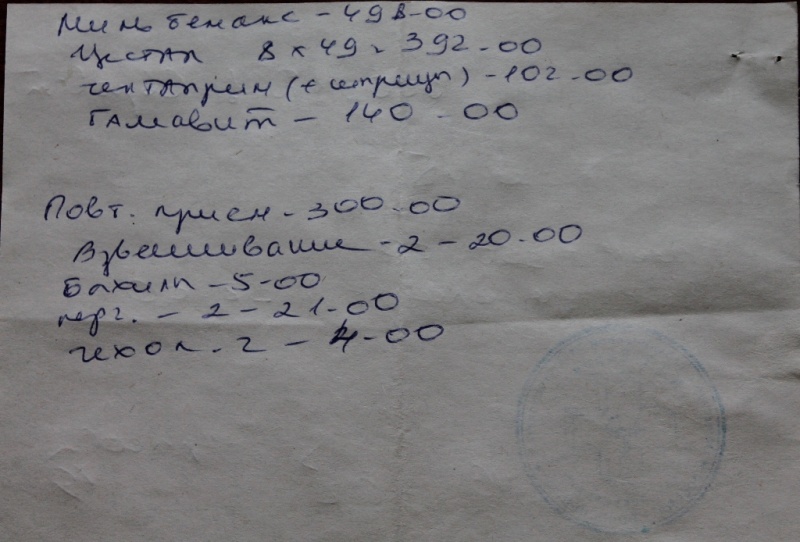 Мильбемакс - 498-00
Цестал 8 x 49 = 392-00
(+ шприцы) - 102-00
Гамавит - 140-00
Повт. прием - 300-00
Взвешивание - 2 - 20-00
Бахилы - 5-00
перч. - 2 - 21-00
чехол - 2 - 4-00